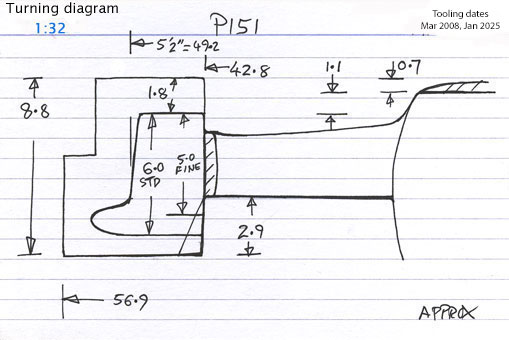 Turning diagram
1:32
P151
Tooling dates
Mar 2008, Jan 2025
5'2"=49.2
42.8
1.1
0.7
8.8
1.8
6.0
STD
5.0
FINE
2.9
56.9
APPROX